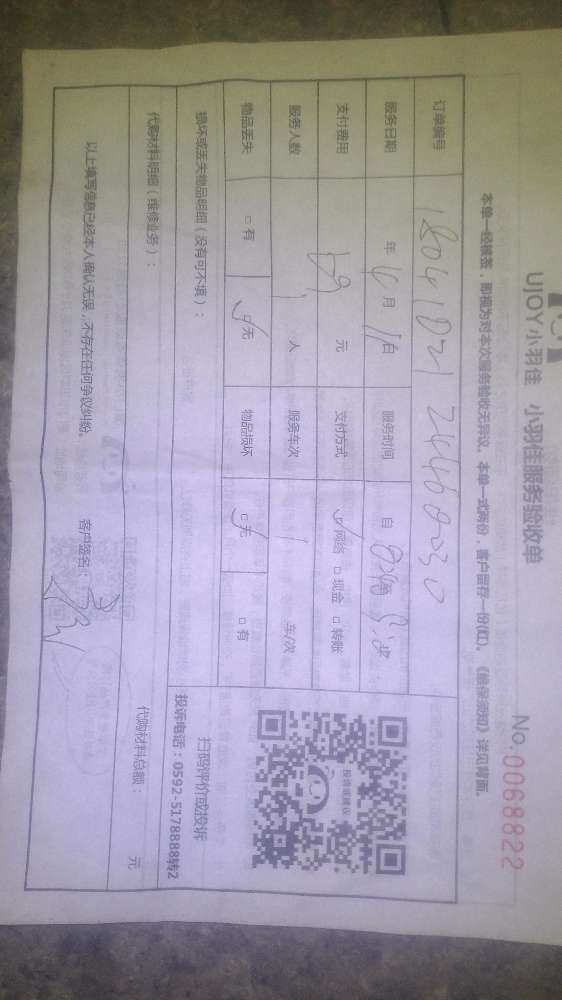 UJOY小羽佳 小羽佳服务验收单
No.0068822
本单一经核签，即视为对本次服务验收无异议。本单一式两份，客户留存一份(红)。《维保须知》详见背面。
订单编号
服务日期 年 6 月 1 日 服务时间 自
支付费用 元 支付方式 ☑网络 □现金 □转账
服务人数 1 人 服务车次 1 车/次
物品丢失 □有 ☑无 物品损坏 ☑无 □有
投诉或建议
扫码评价或投诉
投诉电话：0592-5178888转2
损坏或丢失物品明细（没有可不填）：
代购材料明细（维修业务）：
代购材料总额： 元
以上填写信息已经本人确认无误，不存在任何争议纠纷。 客户签名：